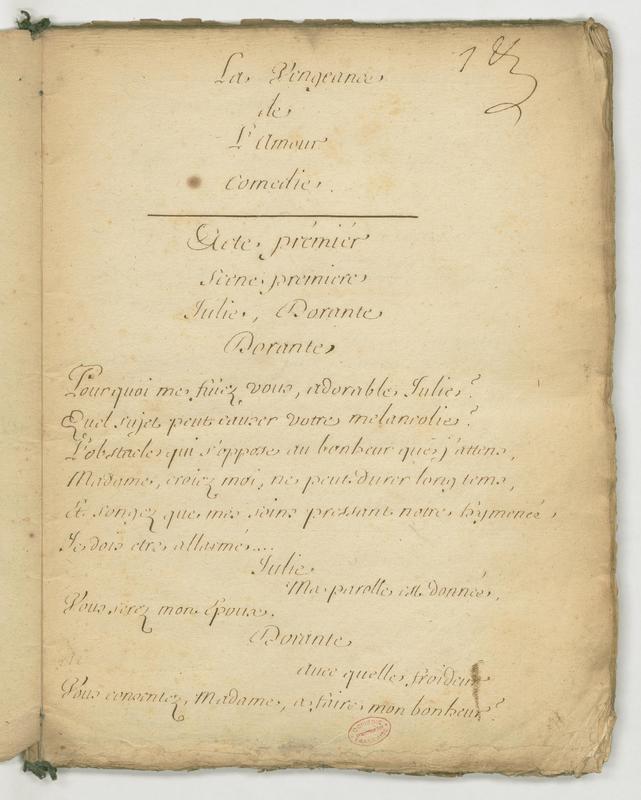 La Vengeance
de
L'Amour
Comedie.
Acte prémiér
Scene premiere
Julie, Dorante
Dorante
Pourquoi me fuiez vous, adorable Julie?
Quel sujet peut causer votre melancolie?
L'obstacle qui s'oppose au bonheur que j'attens,
Madame, croiez moi, ne peut durer long tems,
Et songez que mes soins pressant notre hymenée
Je dois etre allarmé....
Julie
Ma parolle est donnée,
Vous serez mon Epoux.
Dorante
avec quelle froideur
Vous consentez, Madame, a faire mon bonheur?